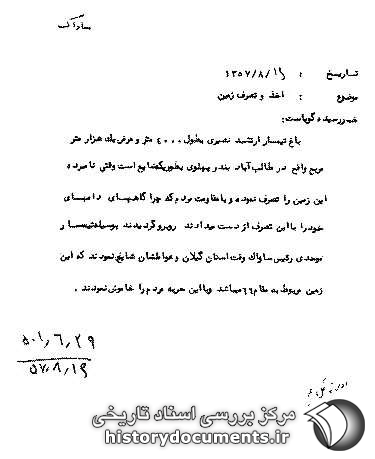 تاریخ : ۱۳۵۷/۸/۱۹
موضوع : اخذ و تصرف زمین
خبر رسیده گویاست:
باغ تیمسار ارتشبد نصیری بطول ۴۰۰۰ متر و عرض یک هزار متر
مربع واقع در طالب آباد بندر پهلوی بطور یکه شایع است وقتی نامبرده
این زمین را تصرف نموده و با مقاومت مردم که چراگاههای دامهای
خود را با این تصرف از دست میدادند روبرو گردیدند بوسیله تیمسار
موحدی رئیس ساواک وقت استان گیلان و عواملشان شایع نمودند که این
زمین مربوط به مقام ۶۶ میباشد و با این حربه مردم را خاموش نمودند .
۵۰۱,۶,۲۹
۵۷,۸,۱۹
مرکز بررسی اسناد تاریخی
historydocuments.ir